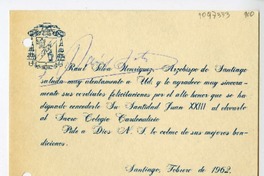 Raúl Silva Henríquez, Arzobispo de Santiago
saluda muy atentamente a Ud. y le agradece muy sincera-
mente sus cordiales felicitaciones por el alto honor que se ha
dignado concederle Su Santidad Juan XXIII al elevarlo
al Sacro Colegio Cardenalicio
Pide a Dios N. S. le colme de sus mejores ben-
diciones.
Santiago, Febrero de 1962.